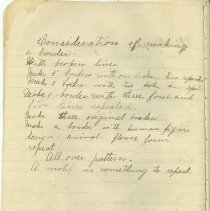 Consideration of making
a border.
With broken lines.
Make 5 borders with one broken line repeated
Make 1 border with two broken lines
Make 1 border with three, four and
five lines repeated.
Make three original borders.
Make a border with human figure
design, animal, flower form
repeat.
All over pattern.
A motif is something to repeat.